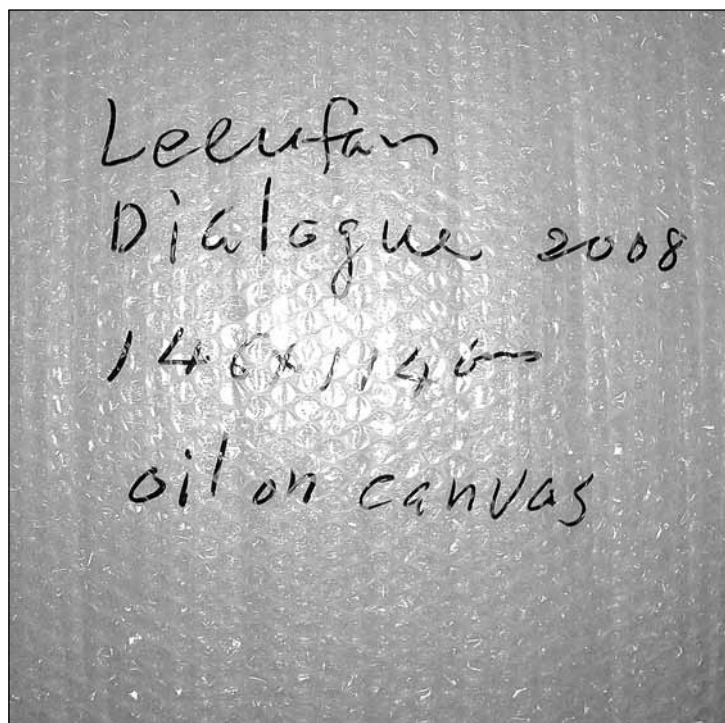 Leeufan
Dialogue 2008
146x114cm
oil on canvas